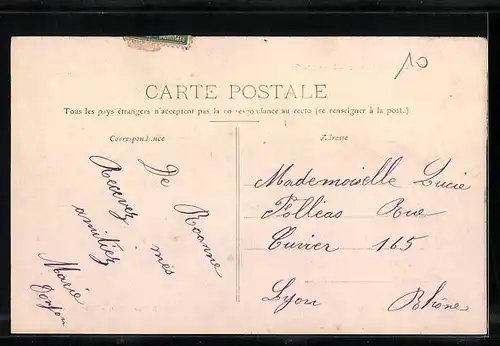 10
CARTE POSTALE
Tous les pays étrangers n'acceptent pas la correspondance au recto (se renseigner à la post.)
Correspondance
Adresse
De Roanne
Recevez mes
amitiez
Marie
Mademoiselle Lucie
Folléas Rue
Cuvier 165
Lyon Rhône